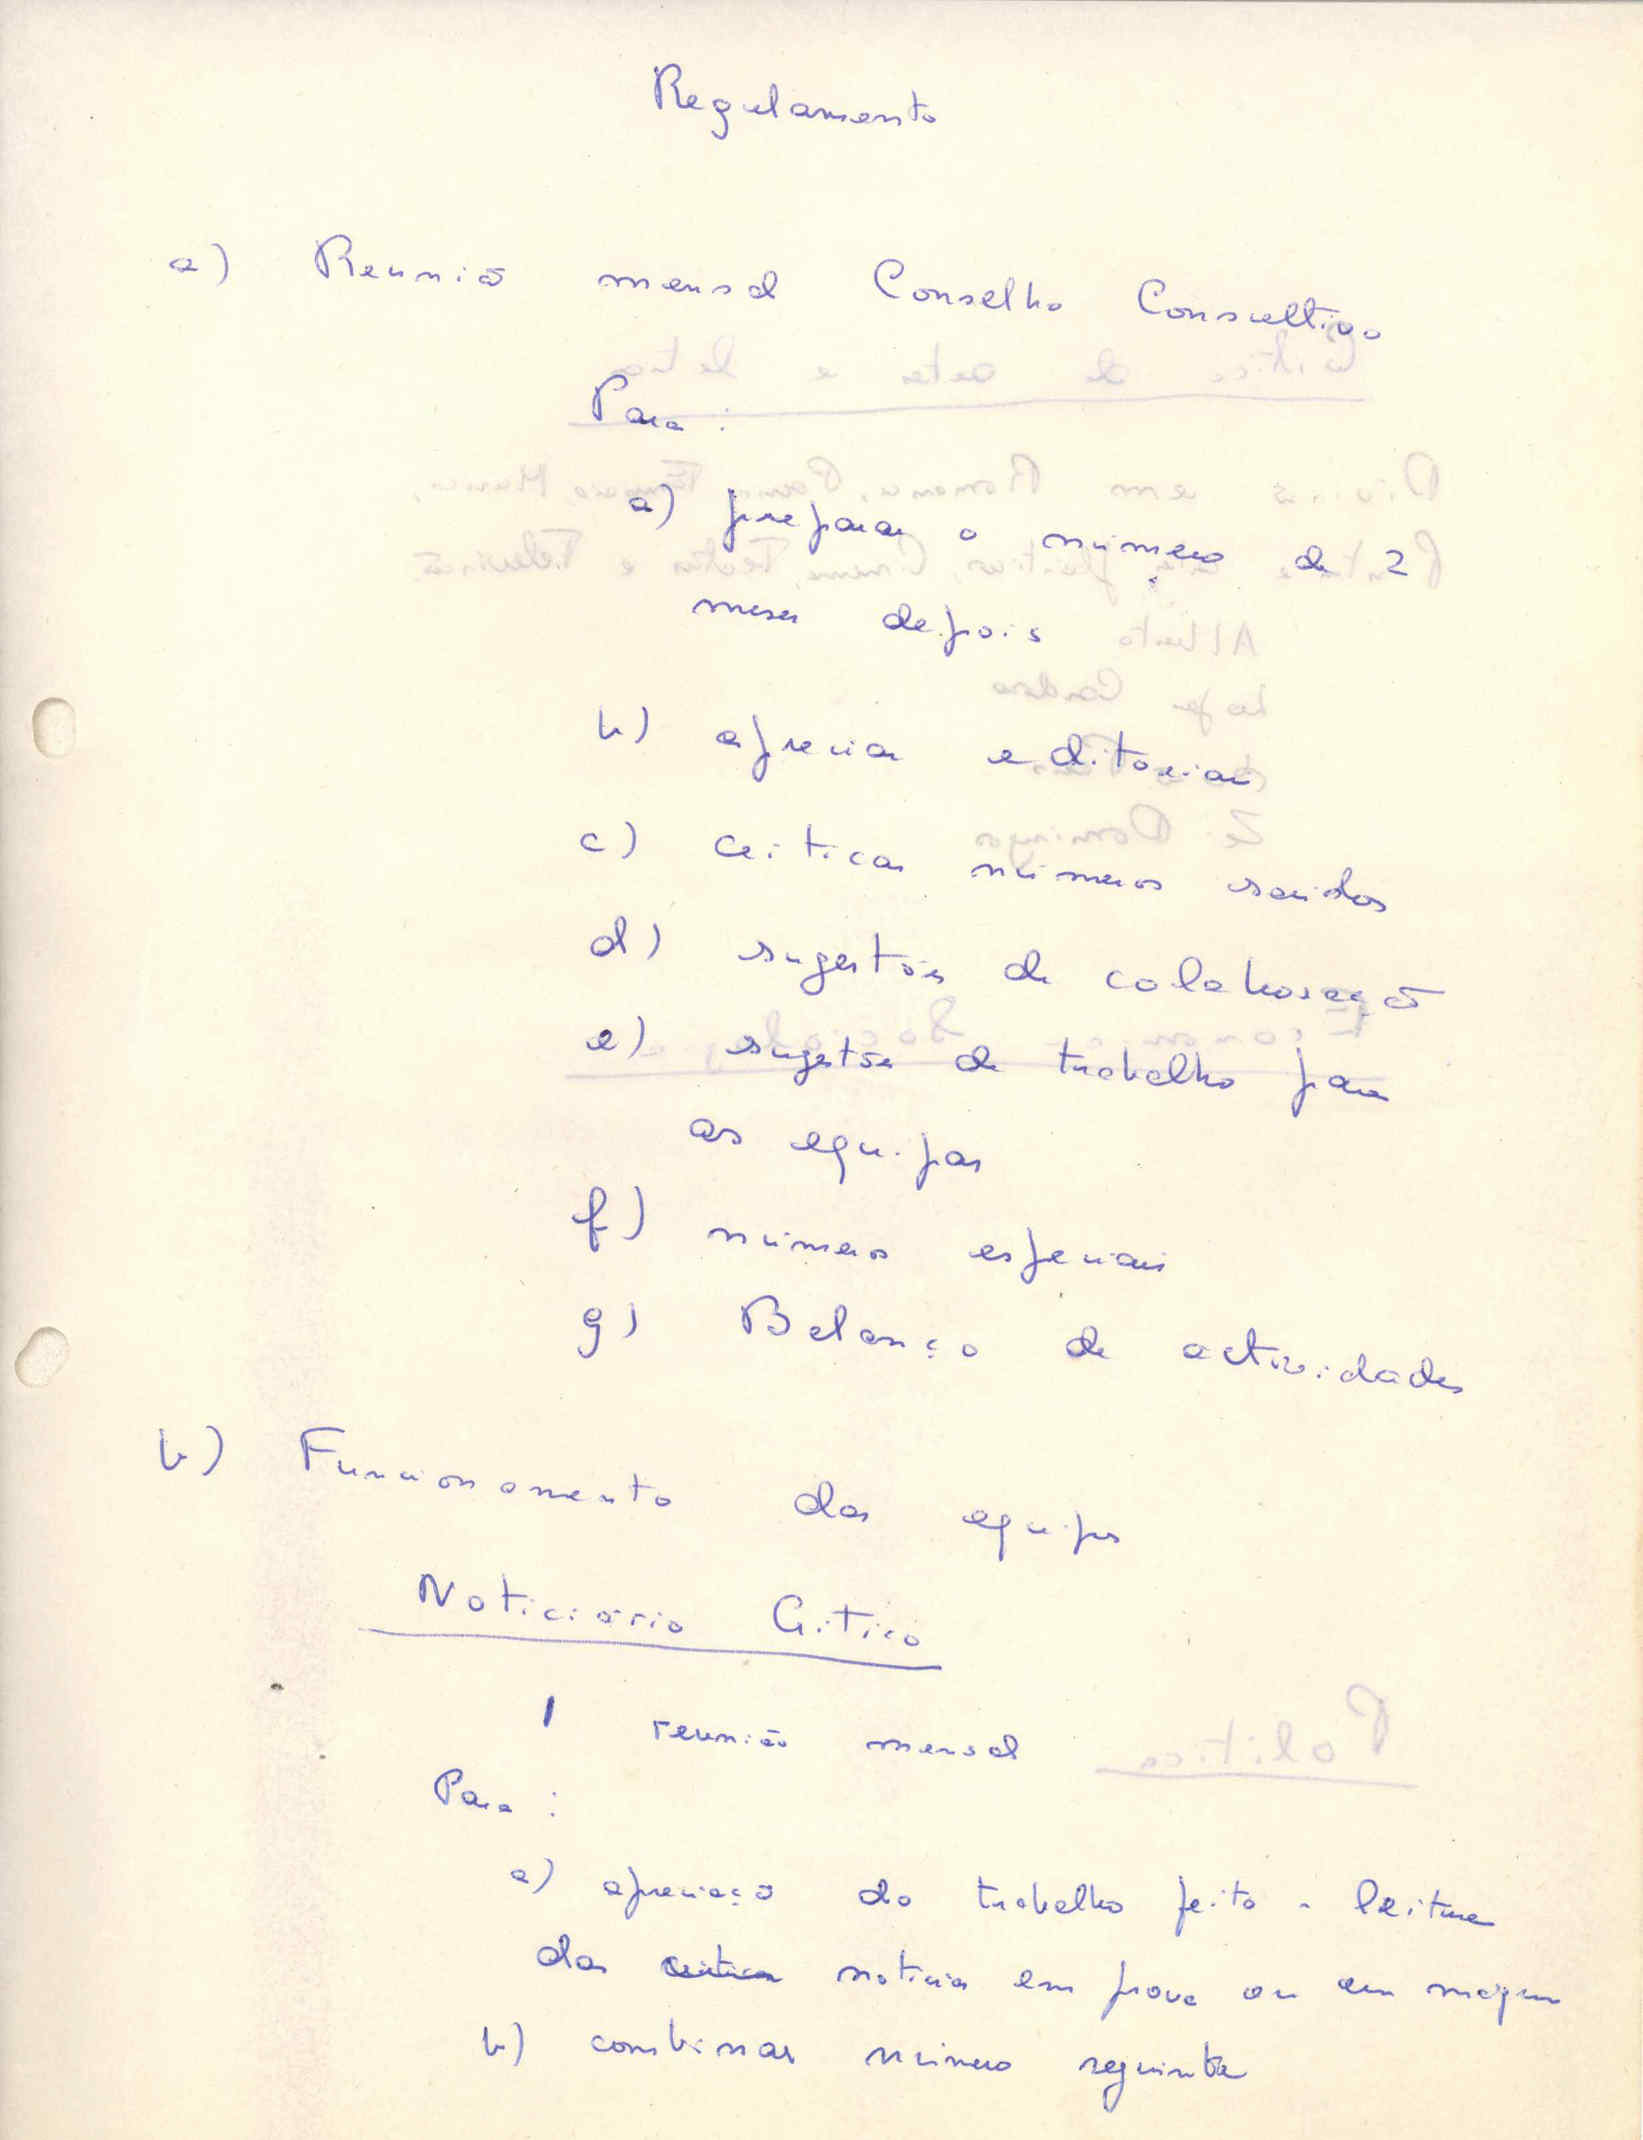 Regulamento
a) Reunião mensal Conselho Consultivo
Para :
a) preparar o número de 2
meses depois
b) apreciar editoriais
c) criticar números saídos
d) sugestões de colaboração
e) sugestões de trabalho para
as equipas
f) números especiais
g) Balanço de actividades
b) Funcionamento das equipas
Noticiário Crítico
1 reunião mensal
Para :
a) apreciação do trabalho feito - leitura
das notícias em prova ou em
b) combinar número seguinte